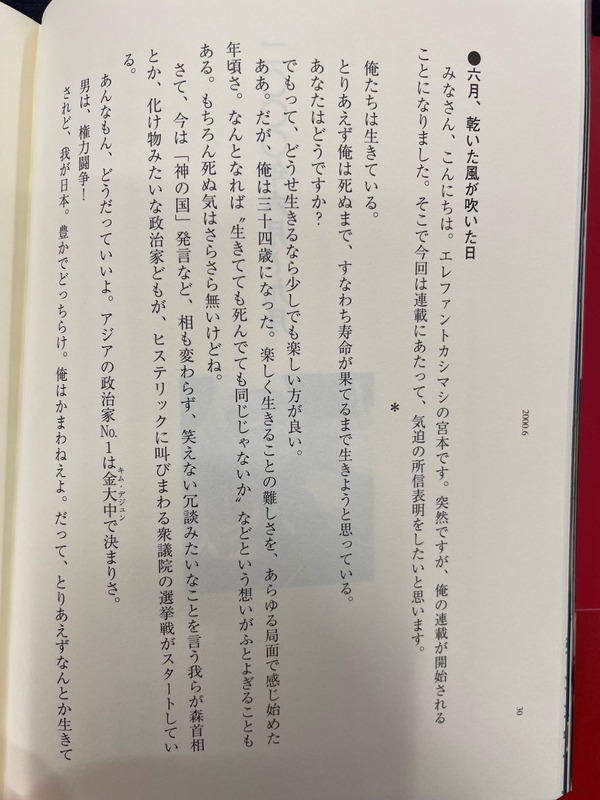 ●六月、乾いた風が吹いた日
2000.6
みなさん、こんにちは。エレファントカシマシの宮本です。突然ですが、俺の連載が開始される
ことになりました。そこで今回は連載にあたって、気迫の所信表明をしたいと思います。
*
俺たちは生きている。
とりあえず俺は死ぬまで、すなわち寿命が果てるまで生きようと思っている。
あなたはどうですか?
でもって、どうせ生きるなら少しでも楽しい方が良い。
ああ。だが、俺は三十四歳になった。楽しく生きることの難しさを、あらゆる局面で感じ始めた
年頃さ。なんとなれば〝生きてても死んでても同じじゃないか〟などという想いがふとよぎることも
ある。もちろん死ぬ気はさらさら無いけどね。
さて、今は「神の国」発言など、相も変わらず、笑えない冗談みたいなことを言う我らが森首相
とか、化け物みたいな政治家どもが、ヒステリックに叫びまわる衆議院の選挙戦がスタートしてい
る。
あんなもん、どうだっていいよ。アジアの政治家No.1は金大中で決まりさ。
キム・デジュン
男は、権力闘争!
されど、我が日本。豊かでどっちらけ。俺はかまわねえよ。だって、とりあえずなんとか生きて
30